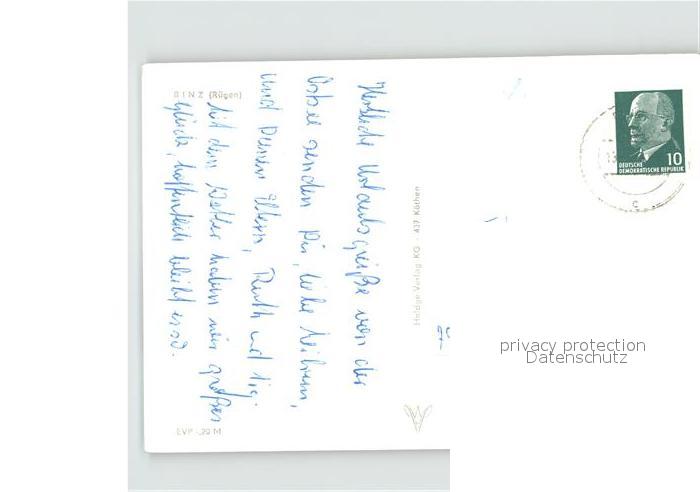 BINZ (Rügen)
Herzliche Urlaubsgrüße von der
Ostsee senden Dir, liebe
und Deinen Eltern, Ruth und
Mit dem Wetter haben wir großes
Glück, hoffentlich bleibt es so.
EVP -,20 M
Verlag KG · 437 Köthen
DEUTSCHE
DEMOKRATISCHE REPUBLIK
10
c
privacy protection
Datenschutz